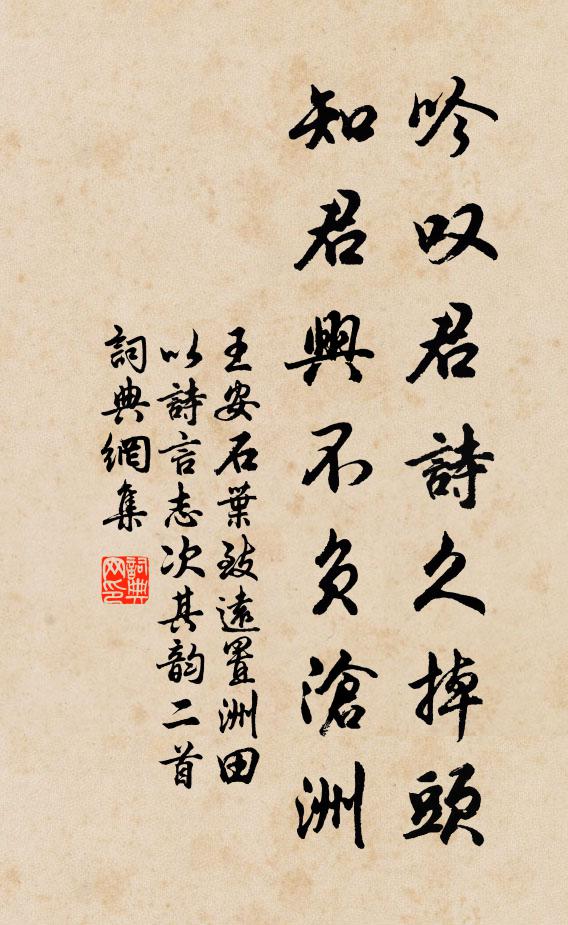 吟叹君詩久掉頭
知君興不負滄洲
王安石葉致遠置洲田
以詩言志次其韵二首
詞典網集
詞典网印